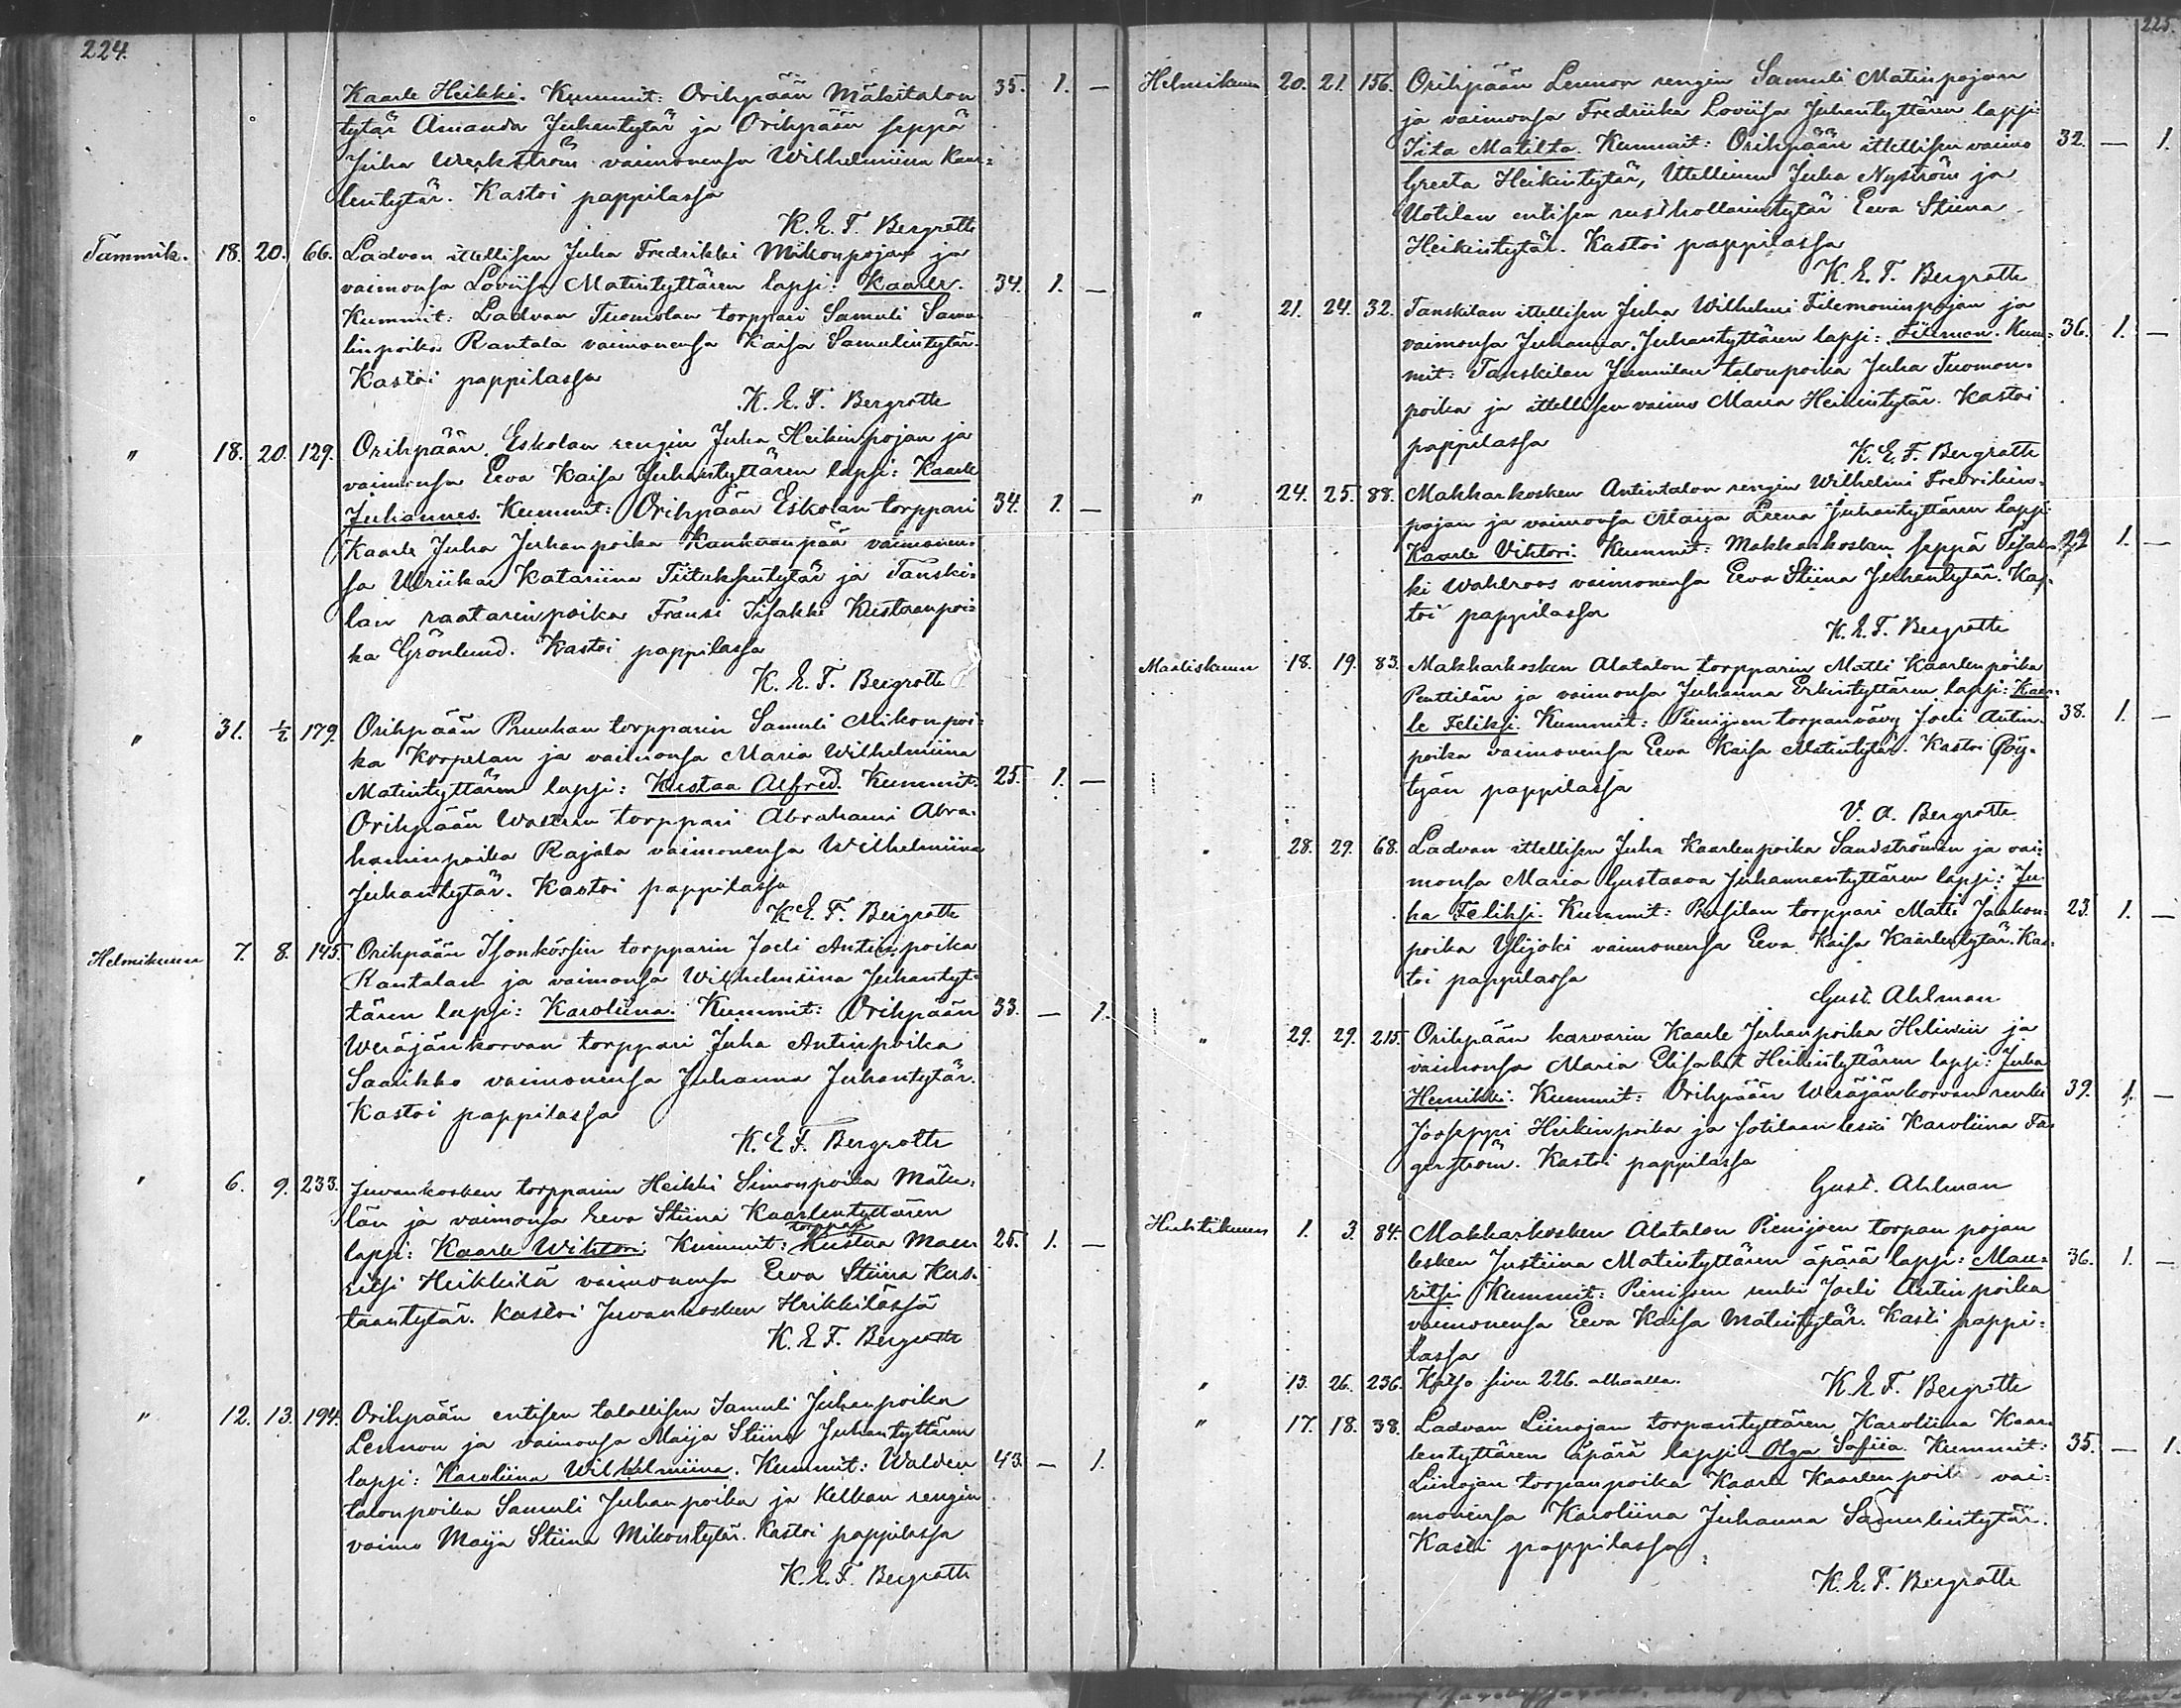 224.
Kaarle Heikki. Kummit: Orihpään Mäkitalon 35. 1. —
tytär Amanda Juhantytär ja Orihpään seppä
Juha Werkström vaimonensa Wilhelmiina Kaar=
lentytär. Kastoi pappilassa
K. E. F. Bergroth
Tammik. 18. 20. 66. Ladvan itellisen Juha Fredrikki Mikonpojan ja
vaimonsa Loviisa Matintyttären lapsi: Kaarle. 34. 1. —
Kummit: Ladvan Tuomolan torppari Samuli Samu=
linpoika Rantala vaimonensa Kaisa Samulintytär.
Kastoi pappilassa
K. E. F. Bergroth
" 18. 20. 129. Orihpään Eskolan rengin Juha Heikinpojan ja
vaimonsa Eeva Kaisa Juhantyttären lapsi: Kaarle
Juhannes. Kummit: Orihpään Eskolan torppari 34. 1. —
Kaarle Juha Juhanpoika Kankaanpää vaimonen=
sa Ulriika Katariina Tiituksentytär ja Tanski=
lan raatarinpoika Fransi Iisakki Kustaanpoi=
ka Grönlund. Kastoi pappilassa
K. E. F. Bergroth
" 31. 1/2 179. Orihpään Ruuhan torpparin Samuli Mikonpoi=
ka Korpelan ja vaimonsa Maria Wilhelmiina
Matintyttären lapsi: Kustaa Alfred. Kummit: 25. 1. —
Orihpään torppari Abrahami Abra=
haminpoika Rajala vaimonensa Wilhelmiina
Juhantytär. Kastoi pappilassa
K. E. F. Bergroth
Helmikuun 7. 8. 145. Orihpään Isonkörsin torpparin Joeli Antinpoika
Rantalan ja vaimonsa Wilhelmiina Juhantyt=
tären lapsi: Karoliina. Kummit: Orihpään 33. — 1.
Weräjänkorvan torppari Juha Antinpoika
Saarikko vaimonensa Juhanna Juhantytär.
Kastoi pappilassa
K. E. F. Bergroth
" 6. 9. 233. Juvankosken torpparin Heikki Simonpoika Mäke=
län ja vaimonsa Eeva Stiina Kaarlentyttären
torppari
lapsi: Kaarle Wihtori. Kummit: Kustaa Mau= 25. 1. —
ritsi Heikkilä vaimonensa Eeva Stiina Kus=
taantytär. Kastoi Juvankosken Heikkilässä
K. E. F. Bergroth
" 12. 13. 194. Orihpään entisen talollisen Samuli Juhanpoika
Lennon ja vaimonsa Maija Stiina Juhantyttären
lapsi: Karoliina Wilhelmiina. Kummit: 43. — 1.
talonpoika Samuli Juhanpoika ja Kelkan rengin
vaimo Maija Stiina Mikontytär. Kastoi pappilassa
K. E. F. Bergroth
225.
Helmikuun 20. 21. 156. Orihpään Lennon rengin Samuli Matinpojan
ja vaimonsa Fredriika Loviisa Juhantyttären lapsi:
Iita Matilta. Kummit: Orihpään itellisen vaimo 32. — 1.
Greeta Heikintytär, Itellinen Juha Nyström ja
Uotilan entisen rusthollarintytär Eeva Stiina
Heikintytär. Kastoi pappilassa
K. E. F. Bergroth
" 21. 24. 32. Tanskilan itellisen Juha Wilhelmi Filemoninpojan ja
vaimonsa Juhanna Juhantyttären lapsi: Filemon. Kum= 36. 1. —
mit: Tanskilan Junnilan talonpoika Juha Tuomon=
poika ja itellisen vaimo Maria Heikintytär. Kastoi
pappilassa
K. E. F. Bergroth
" 24. 25. 88. Makkarkosken Antintalon rengin Wilhelmi Fredrikin=
pojan ja vaimonsa Maija Leena Juhantyttären lapsi:
Kaarle Viktori. Kummit: Makkarkosken seppä Iisak= 29 1. —
ki Wahlroos vaimonensa Eeva Stiina Juhantytär. Kas=
toi pappilassa
K. E. F. Bergroth
Maaliskuun 18. 19. 83. Makkarkosken Alatalon torpparin Matti Kaarlenpoika
Penttilän ja vaimonsa Juhanna Erkintyttären lapsi: Kaar=
le Feliksi. Kummit: Pienijoen torpanvävy Joeli Antin= 38. 1. —
poika vaimonensa Eeva Kaisa Matintytär. Kastoi Pöy=
tyän pappilassa
V. A. Bergroth
" 28. 29. 68. Ladvan itellisen Juha Kaarlenpoika Sandströmin ja vai=
monsa Maria Gustaava Juhannantyttären lapsi: Ju=
ha Feliksi. Kummit: torppari Matti Jaakon= 23. 1. —
poika Ylijoki vaimonensa Eeva Kaisa Kaarlentytär. Kas=
toi pappilassa
Gust. Ahlman
" 29. 29. 215. Orihpään karvarin Kaarle Juhanpoika Helinin ja
vaimonsa Maria Elisabet Heikintyttären lapsi: Juha
Henrikki. Kummit: Orihpään Weräjänkorvan renki 39. 1. —
Jooseppi Heikinpoika ja sotilaan leski Karoliina Fa=
gerström. Kastoi pappilassa
Gust. Ahlman
Huhtikuun 1. 3. 84. Makkarkosken Alatalon Pienijoen torpan pojan
lesken Justiina Matintyttären äpärä lapsi: Mau= 36. 1. —
ritsi. Kummit: Pienijoen renki Joeli Antinpoika
vaimonensa Eeva Kaisa Matintytär. Kasti pappi=
lassa
" 13. 26. 236. Katso sivu 226. alhaalla. K. E. F. Bergroth
" 17. 18. 38. Ladvan Liinojan torpantyttären Karoliina Kaar=
lentyttären äpärä lapsi Olga Sofiia. Kummit: 35. — 1.
Liinojan torpanpoika Kaarle Kaarlenpoik vai=
monensa Karoliina Juhanna Samulintytär.
Kasti pappilassa
K. E. F. Bergroth